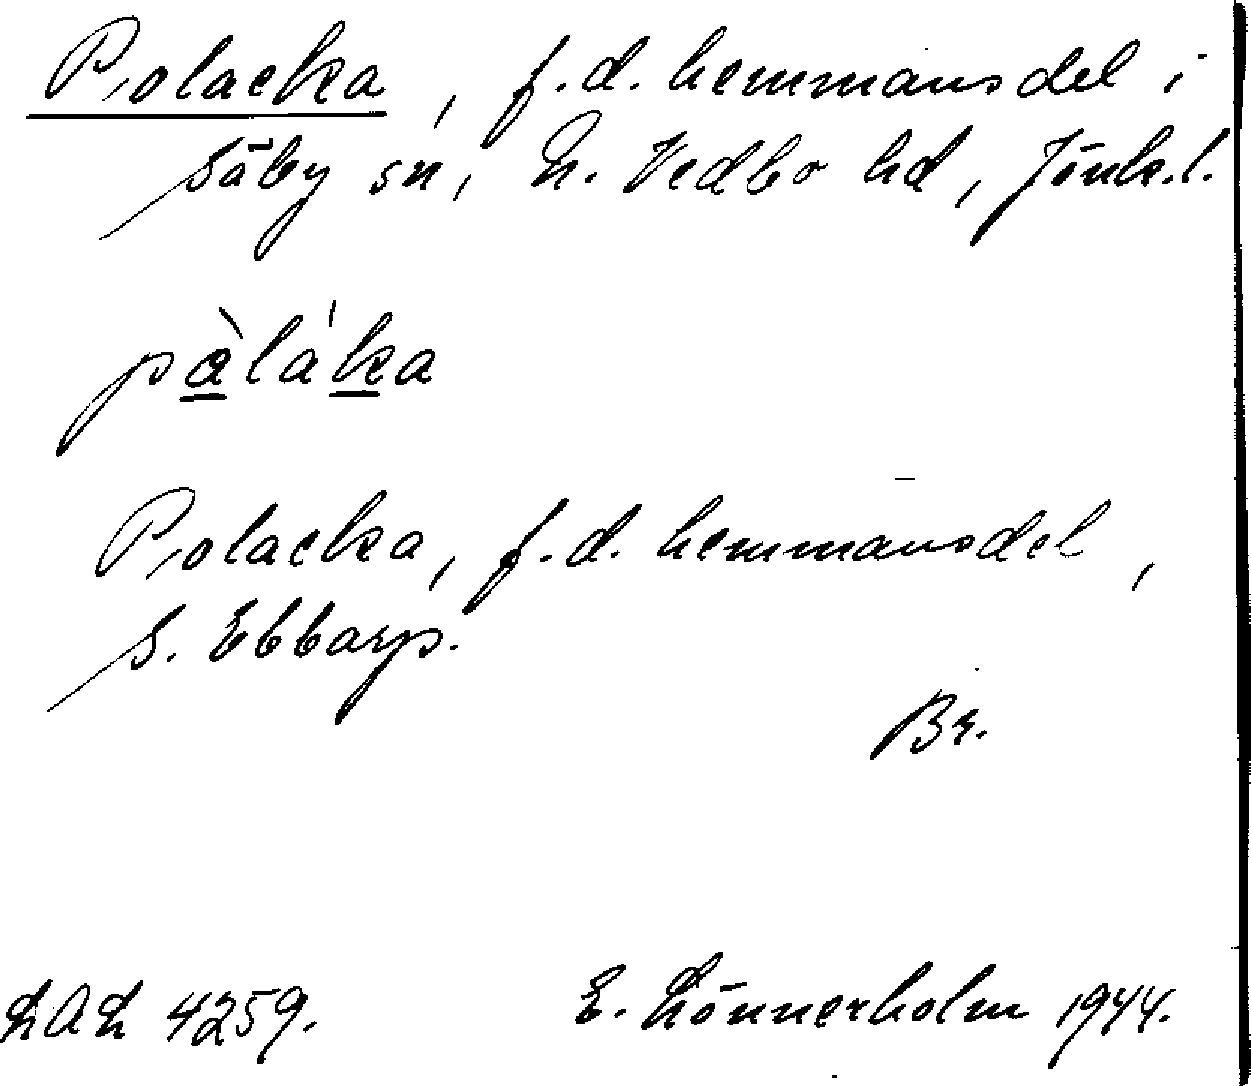 Polacka, f.d. hemmansdel i
Säby sn, N. Vedbo hd, Jönk.l.
pàláka
Polacka, f.d. hemmansdel,
S. Ebbarp.
Br.
LAL 4259.
E. Lönnerholm 1944.